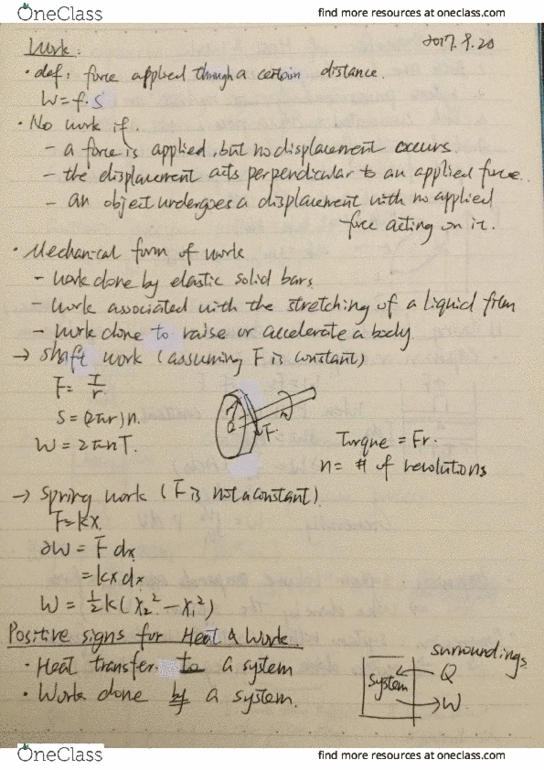 OneClass
find more resources at oneclass.com
Work:
2017.9.20
· def: force applied through a certain distance.
W=f·s
· No work if.
- a force is applied, but no displacement occurs.
- the displacement acts perpendicular to an applied force.
- an object undergoes a displacement with no applied
force acting on it.
· Mechanical form of work
- work done by elastic solid bars.
- work associated with the stretching of a liquid film
- work done to raise or accelerate a body.
→ shaft work (assuming F is constant)
F= T/r
S=(2πr)n.
W=2πnT.
r
F.
n
Torque = Fr.
n= # of revolutions
→ Spring work (F is not a constant).
F=kx.
∂W = F dx
= kx dx
W = ½k(x₂²-x₁²)
Positive signs for Heat & Work.
· Heat transfer to a system
· Work done by a system.
surroundings
System
Q
W
OneClass
find more resources at oneclass.com